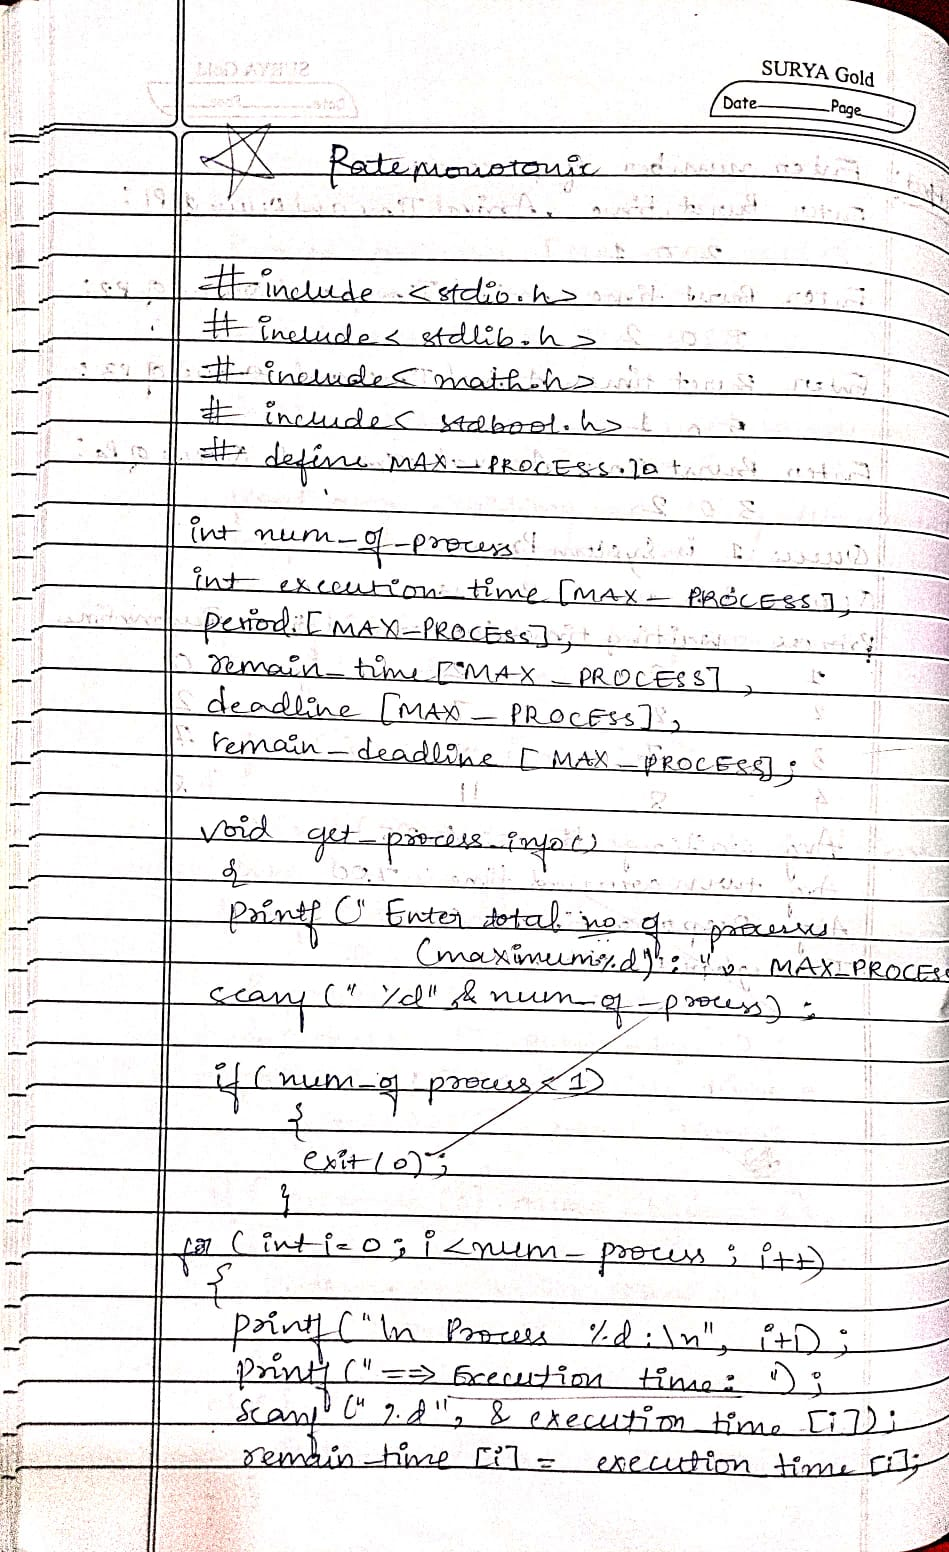 SURYA Gold
Date Page
Rate Monotonic
# include <stdio.h>
# include < stdlib.h>
# include < math.h>
# include < stdbool.h>
# define MAX_PROCESS 10
int num_of_process;
int execution time [MAX_PROCESS],
period [MAX_PROCESS],
remain_time [MAX_PROCESS],
deadline [MAX_PROCESS],
remain_deadline [MAX_PROCESS];
void get_process_info()
{
printf (" Enter total no. of processes
(maximum %d): ", MAX_PROCESS
scanf (" %d" & num_of_process);
if (num_of process < 1)
{
exit(0);
}
for (int i=0; i<num_process; i++)
{
printf ("\n Process %d:\n", i+1);
printf (" ==> Execution time: ");
scanf (" %d", & execution time [i]);
remain_time [i] = execution time [i];